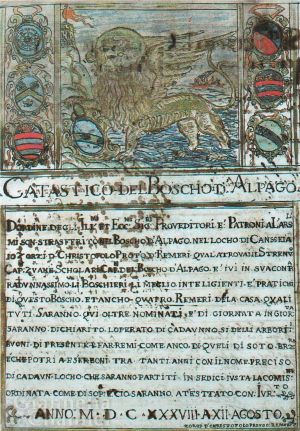 CATASTICO DEL BOSCHO D'ALPAGO
D'ORDINE DEGLI ILL. ET ECC. SIG. PROVEDITORI E PATRONI AL ARS.
MI SON TRASFERITO NEL BOSCHO D'ALPAGO, NEL LOCHO DI CANSEIA
IO ZORZI D. CHRISTOFOLO PROTO D. REMERI QUAL TROVAI
CAP. SCHOLARI CAP. DEL BOSCHO D'ALPAGO, E IVI IN SUA
BOSCHIERI IL MEGLIO INTELIGENTI E PRATICHI
DI QUESTO BOSCHO, ET ANCHO QUATRO REMERI DE LA CASA QUALI
TUTI SARANNO QUI OLTRE NOMINATI, E DI GIORNATA IN GIOR.
SARANNO DICHIARITO L'OPERATO DI CADAUNO, SI DELI ARBORI
BUONI DI PRESENTE FAR REMI COME ANCO DI QUELI DI SOTO
CHE POTRA ESSER BONI TRA TANTI ANNI CON IL NOME PRECISO
DI CADAUN LOCHO CHE SARANNO PARTITI IN SEDICI JUSTA LA COMIS
ORDINATA COME DI SOPRA SARANO ATTESTATO CON
ANNO M.D.C.XXXVIII A XII AGOSTO
ZORZI D. CHRISTOFOLO PROTO D. REMERI